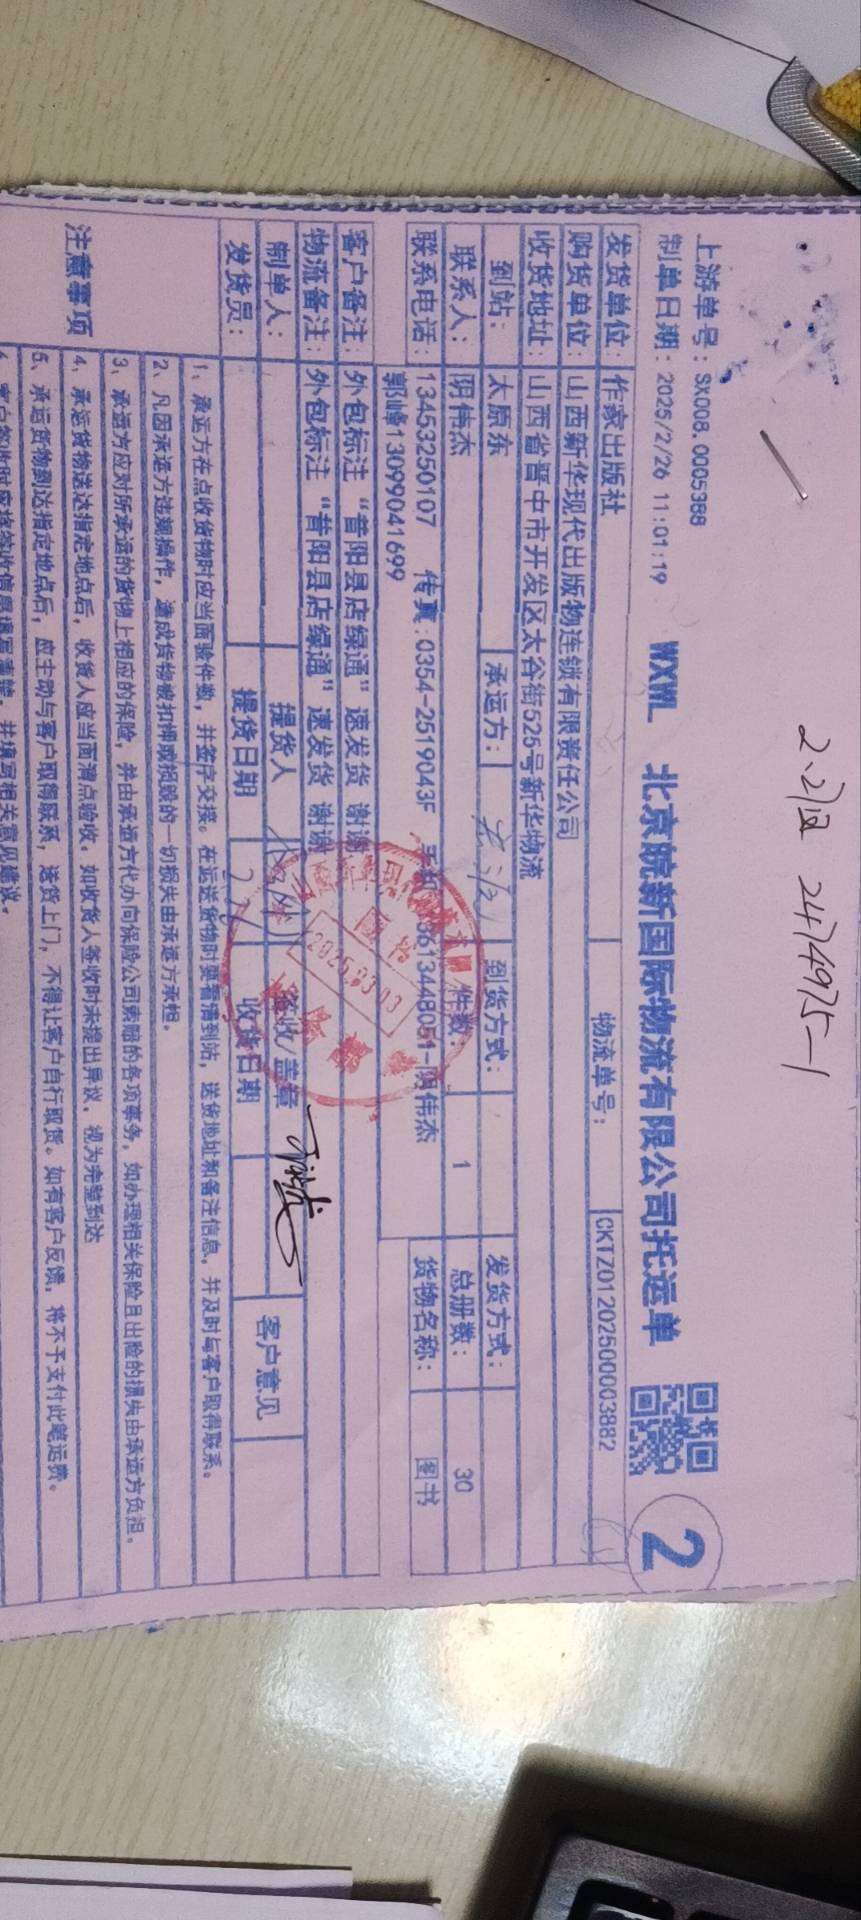 2.27日 2474975-1
上游单号：SX008.0005388
制单日期：2025/2/26 11:01:19
WXWL 北京皖新国际物流有限公司托运单
2
发货单位：作家出版社 物流单号：CKTZ012025000003882
购货单位：山西新华现代出版物连锁有限责任公司
收货地址：山西省晋中市开发区太谷街525号新华物流
到站：太原东 承运方： 到货方式： 发货方式：
联系人：阴伟杰 件数：1 总册数：30
联系电话：13453250107 传真:0354-2519043F 手机:13613448051-阴伟杰
郭峰13099041699 货物名称：图书
客户备注：外包标注“昔阳县店绿通”速发货 谢谢
物流备注：外包标注“昔阳县店绿通”速发货 谢谢
制单人： 提货人 签收/盖章 客户意见
发货员： 提货日期 收货日期
2025.03.03
注意事项
1、承运方在点收货物时应当面验件数，并签字交接。在运送货物时要看清到站，送货地址和备注信息，并及时与客户取得联系。
2、凡因承运方违规操作，造成货物被扣押或损毁的一切损失由承运方承担。
3、承运方应对所承运的货物上相应的保险，并由承运方代办向保险公司索赔的各项事务，如办理相关保险且出险的损失由承运方负担。
4、承运货物送达指定地点后，收货人应当面清点验收，如收货人签收时未提出异议，视为完整到达
5、承运货物到达指定地点后，应主动与客户取得联系，送货上门，不得让客户自行取货。如有客户反馈，将不予支付此笔运费。
6、客户签收时应将签收信息填写清楚，并填写相关意见建议。